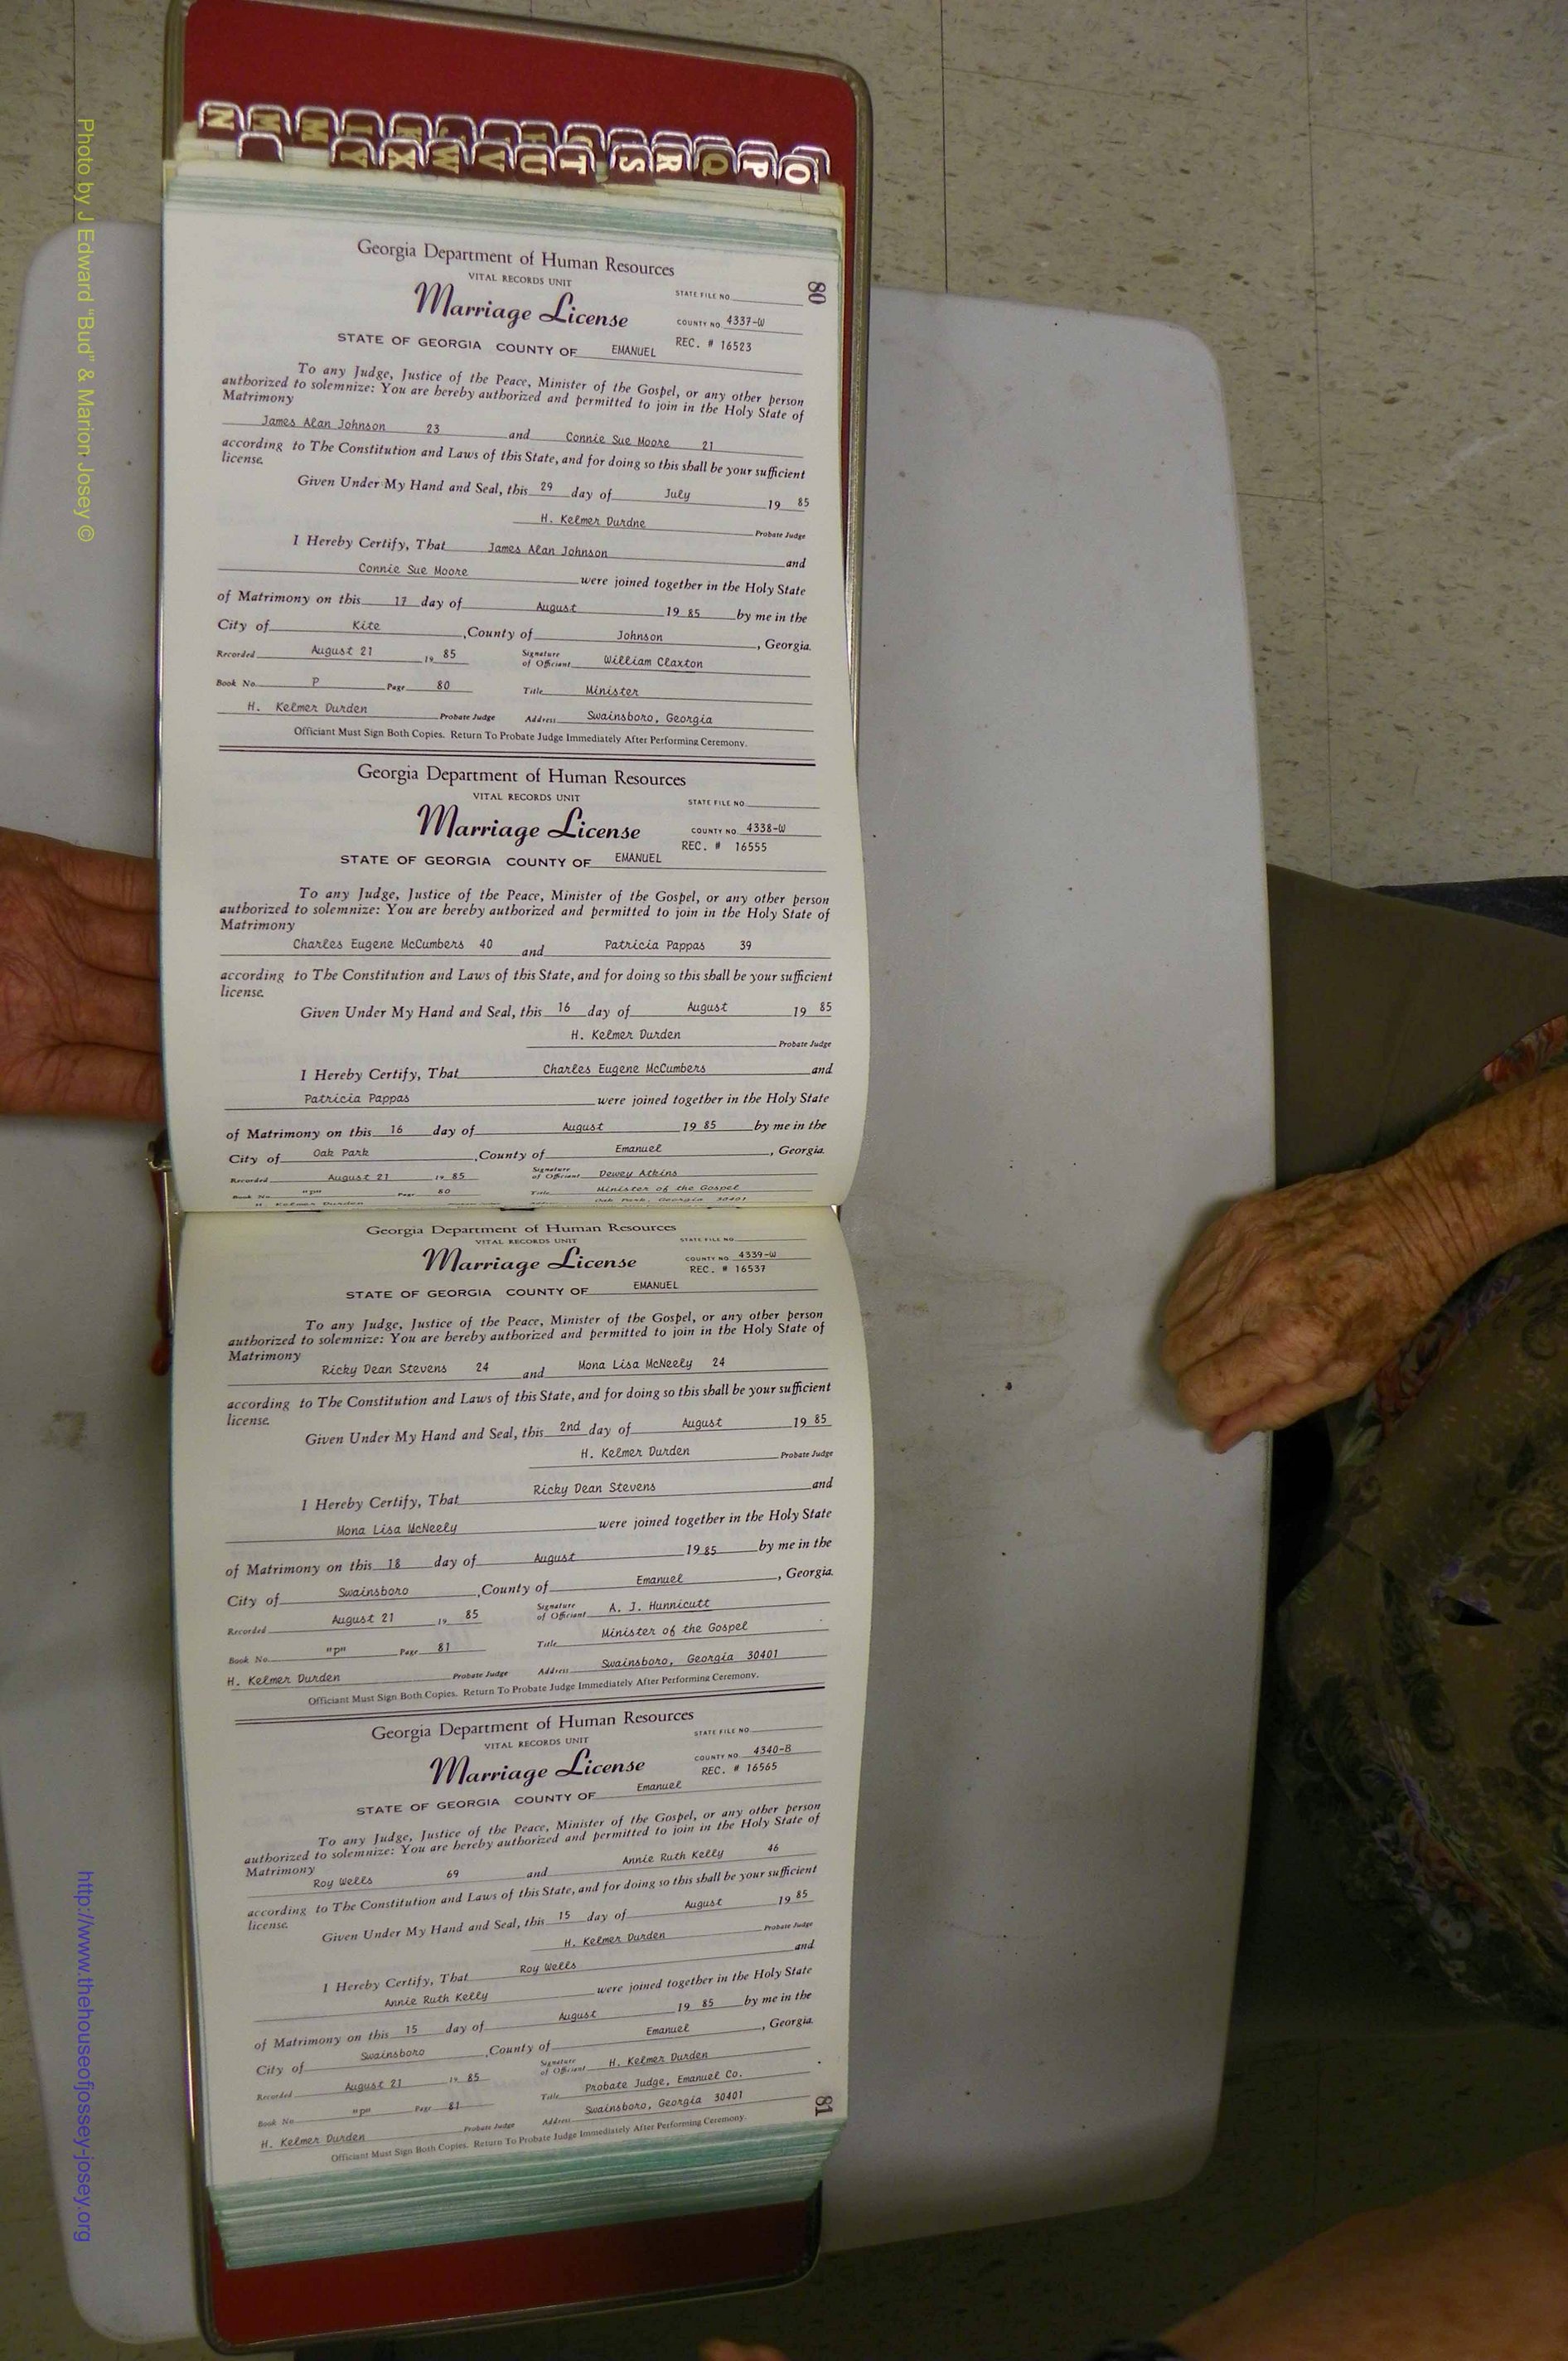 Photo by J Edward "Bud" & Marion Josey ©
http://www.thehouseofjossey-josey.org
N M M L I H
Y X W V U T S R Q P O
Georgia Department of Human Resources
80
VITAL RECORDS UNIT
STATE FILE NO.
Marriage License
COUNTY NO. 4337-W
REC. # 16523
STATE OF GEORGIA COUNTY OF EMANUEL
To any Judge, Justice of the Peace, Minister of the Gospel, or any other person
authorized to solemnize: You are hereby authorized and permitted to join in the Holy State of
Matrimony
James Alan Johnson 23 and Connie Sue Moore 21
according to The Constitution and Laws of this State, and for doing so this shall be your sufficient
license.
Given Under My Hand and Seal, this 29 day of July 19 85
H. Kelmer Durdne
Probate Judge
I Hereby Certify, That James Alan Johnson and
Connie Sue Moore were joined together in the Holy State
of Matrimony on this 17 day of August 19 85 by me in the
City of Kite, County of Johnson, Georgia.
Recorded August 21 19 85 Signature of Officiant William Claxton
Book No. P Page 80 Title Minister
H. Kelmer Durden Probate Judge Address Swainsboro, Georgia
Officiant Must Sign Both Copies. Return To Probate Judge Immediately After Performing Ceremony.
Georgia Department of Human Resources
VITAL RECORDS UNIT
STATE FILE NO.
Marriage License
COUNTY NO. 4338-W
REC. # 16555
STATE OF GEORGIA COUNTY OF EMANUEL
To any Judge, Justice of the Peace, Minister of the Gospel, or any other person
authorized to solemnize: You are hereby authorized and permitted to join in the Holy State of
Matrimony
Charles Eugene McCumbers 40 and Patricia Pappas 39
according to The Constitution and Laws of this State, and for doing so this shall be your sufficient
license.
Given Under My Hand and Seal, this 16 day of August 19 85
H. Kelmer Durden
Probate Judge
I Hereby Certify, That Charles Eugene McCumbers and
Patricia Pappas were joined together in the Holy State
of Matrimony on this 16 day of August 19 85 by me in the
City of Oak Park, County of Emanuel, Georgia.
Recorded August 21 19 85 Signature of Officiant Dewey Atkins
Book No. "p" Page 80 Title Minister of the Gospel
H. Kelmer Durden Oak Park, Georgia 30401
Georgia Department of Human Resources
VITAL RECORDS UNIT
STATE FILE NO.
Marriage License
COUNTY NO. 4339-W
REC. # 16537
STATE OF GEORGIA COUNTY OF EMANUEL
To any Judge, Justice of the Peace, Minister of the Gospel, or any other person
authorized to solemnize: You are hereby authorized and permitted to join in the Holy State of
Matrimony
Ricky Dean Stevens 24 and Mona Lisa McNeely 24
according to The Constitution and Laws of this State, and for doing so this shall be your sufficient
license.
Given Under My Hand and Seal, this 2nd day of August 19 85
H. Kelmer Durden
Probate Judge
I Hereby Certify, That Ricky Dean Stevens and
Mona Lisa McNeely were joined together in the Holy State
of Matrimony on this 18 day of August 19 85 by me in the
City of Swainsboro, County of Emanuel, Georgia.
Recorded August 21 19 85 Signature of Officiant A. J. Hunnicutt
Book No. "p" Page 81 Title Minister of the Gospel
H. Kelmer Durden Probate Judge Address Swainsboro, Georgia 30401
Officiant Must Sign Both Copies. Return To Probate Judge Immediately After Performing Ceremony.
Georgia Department of Human Resources
VITAL RECORDS UNIT
STATE FILE NO.
Marriage License
COUNTY NO. 4340-B
REC. # 16565
STATE OF GEORGIA COUNTY OF Emanuel
To any Judge, Justice of the Peace, Minister of the Gospel, or any other person
authorized to solemnize: You are hereby authorized and permitted to join in the Holy State of
Matrimony
Roy Wells 69 and Annie Ruth Kelly 46
according to The Constitution and Laws of this State, and for doing so this shall be your sufficient
license.
Given Under My Hand and Seal, this 15 day of August 19 85
H. Kelmer Durden
Probate Judge
I Hereby Certify, That Roy Wells and
Annie Ruth Kelly were joined together in the Holy State
of Matrimony on this 15 day of August 19 85 by me in the
City of Swainsboro, County of Emanuel, Georgia.
Recorded August 21 19 85 Signature of Officiant H. Kelmer Durden
Book No. "p" Page 81 Title Probate Judge, Emanuel Co.
H. Kelmer Durden Probate Judge Address Swainsboro, Georgia 30401
Officiant Must Sign Both Copies. Return To Probate Judge Immediately After Performing Ceremony.
81